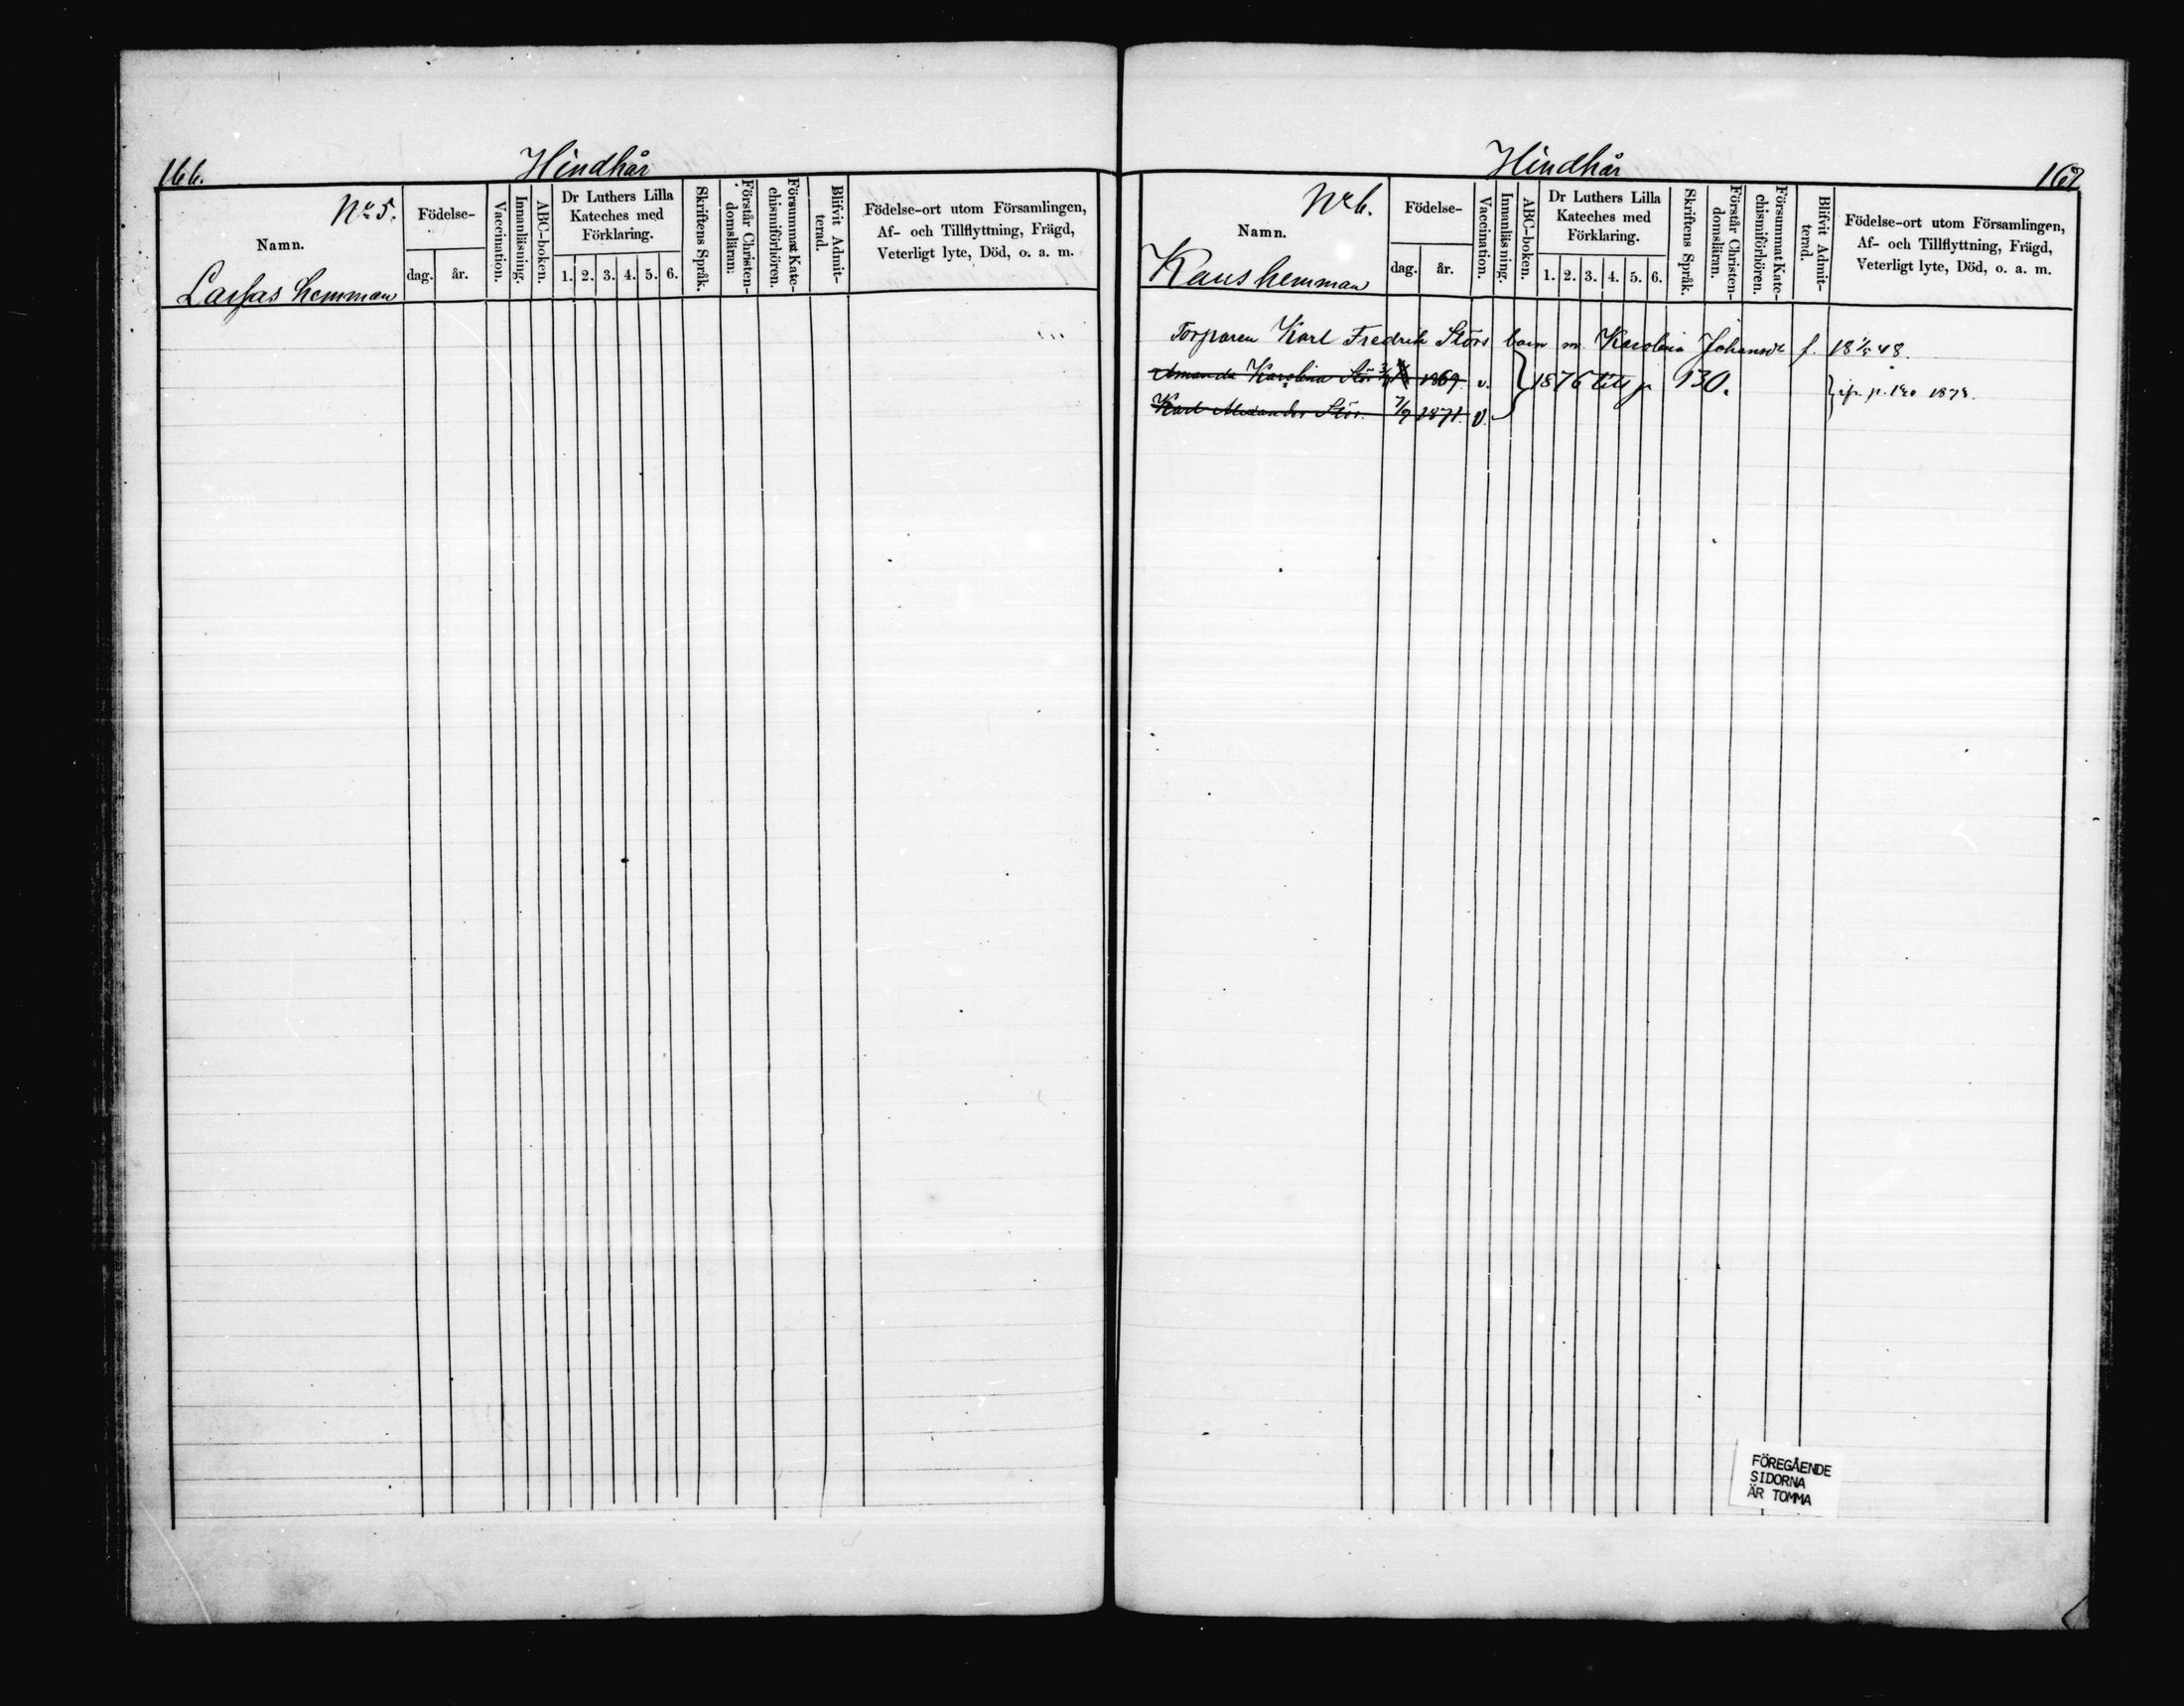 166.
Hindhår
Nº 5.
Namn.
Lassas hemman
Födelse-
dag.
år.
Vaccination.
Innanläsning.
ABC-boken.
Dr Luthers Lilla
Kateches med
Förklaring.
1. 2. 3. 4. 5. 6.
Skriftens Språk.
Förstår Christen-
domsläran.
Försummat Kate-
chismiförhören.
Blifvit Admit-
terad.
Födelse-ort utom Församlingen,
Af- och Tillflyttning, Frägd,
Veterligt lyte, Död, o. a. m.
Hindhår
167
Nº 6.
Namn.
Kaus hemman
Födelse-
dag.
år.
Vaccination.
Innanläsning.
ABC-boken.
Dr Luthers Lilla
Kateches med
Förklaring.
1. 2. 3. 4. 5. 6.
Skriftens Språk.
Förstår Christen-
domsläran.
Försummat Kate-
chismiförhören.
Blifvit Admit-
terad.
Födelse-ort utom Församlingen,
Af- och Tillflyttning, Frägd,
Veterligt lyte, Död, o. a. m.
Torparen Karl Fredrik Störs barn m. Karolina f. 48.
Amanda Karolina Stör 1869 v. 1876 till p 130. p. 130 1878.
Karl Alexander Stör. 7/9 1871. v.
FÖREGÅENDE
SIDORNA
ÄR TOMMA